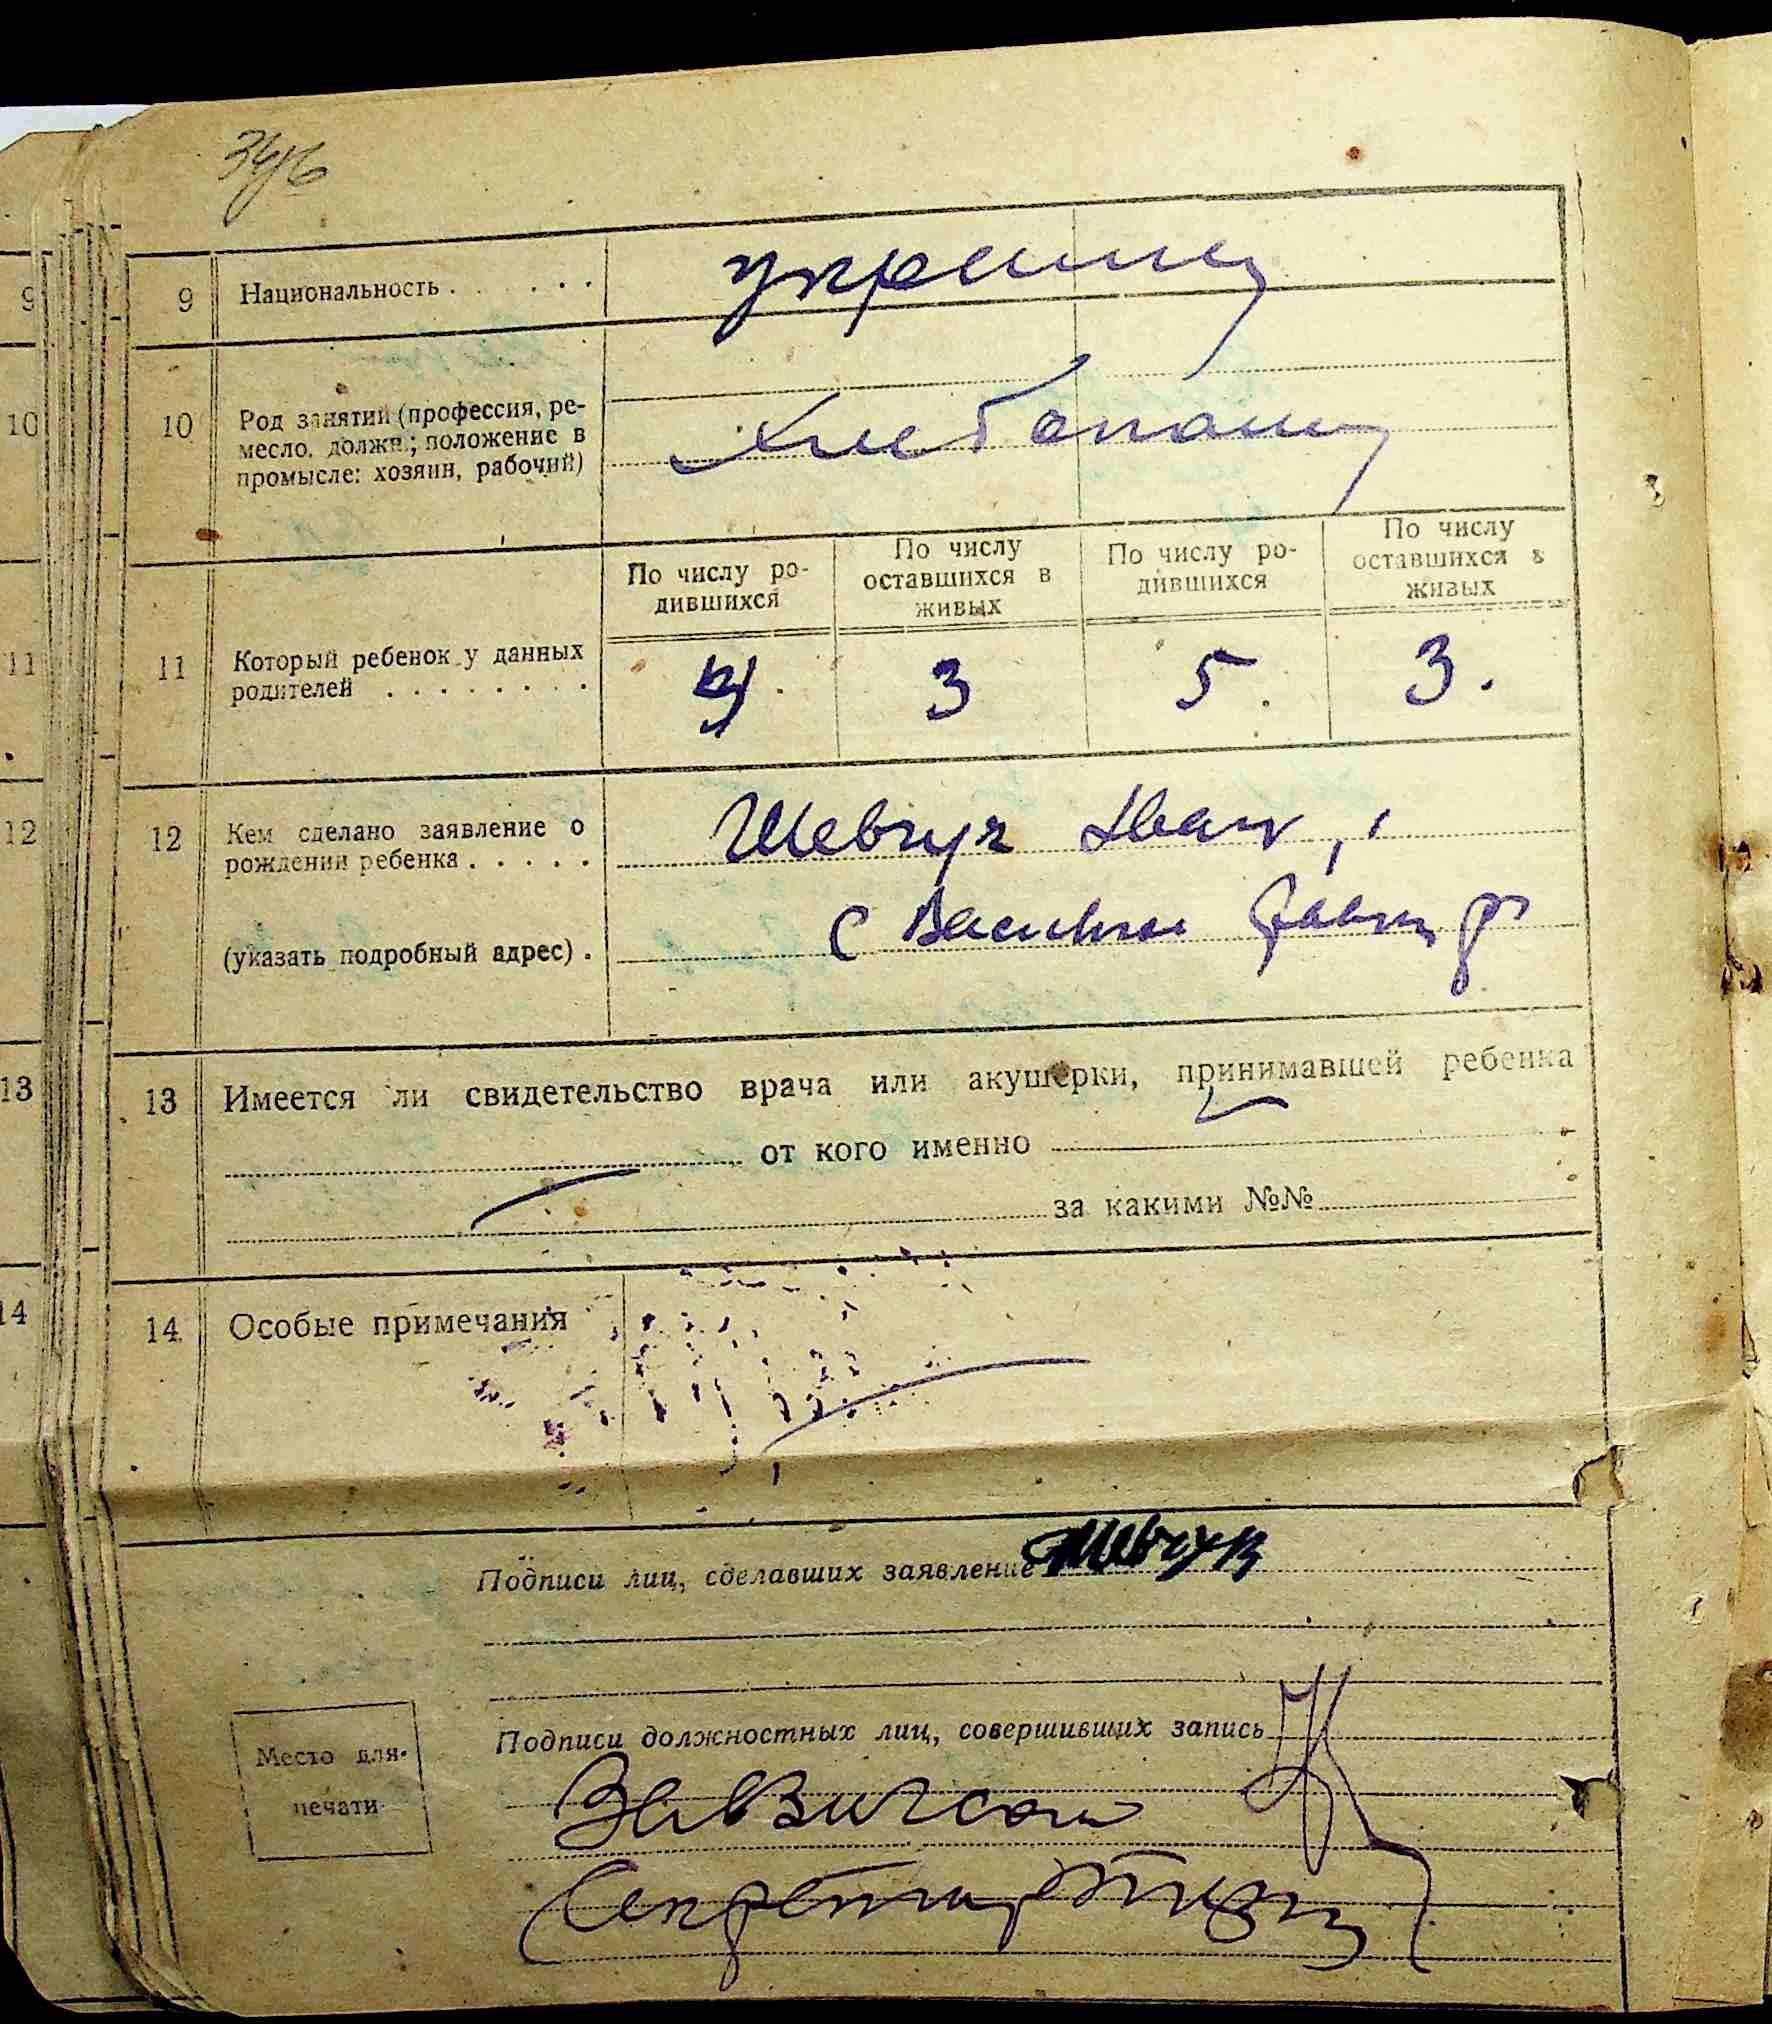 9
9 Национальность . . . . . . украинц
10
10 Род занятий (профессия, ре-
месло, должн.; положение в
промысле: хозяин, рабочий)
Хлебопашц
По числу ро-
дившихся
По числу
оставшихся в
живых
По числу ро-
дившихся
По числу
оставшихся в
живых
11
11 Который ребенок у данных
родителей . . . . . . . .
3 5. 3.
12
12 Кем сделано заявление о
рождении ребенка . . . . .
Шевчук Иван,
(указать подробный адрес) .
с
13
13 Имеется ли свидетельство врача или акушерки, принимавшей ребенка
от кого именно
за какими №№
14
14 Особые примечания
Подписи лиц, сделавших заявление Шевчук
Подписи должностных лиц, совершивших запись
Место для
печати
Секретарь